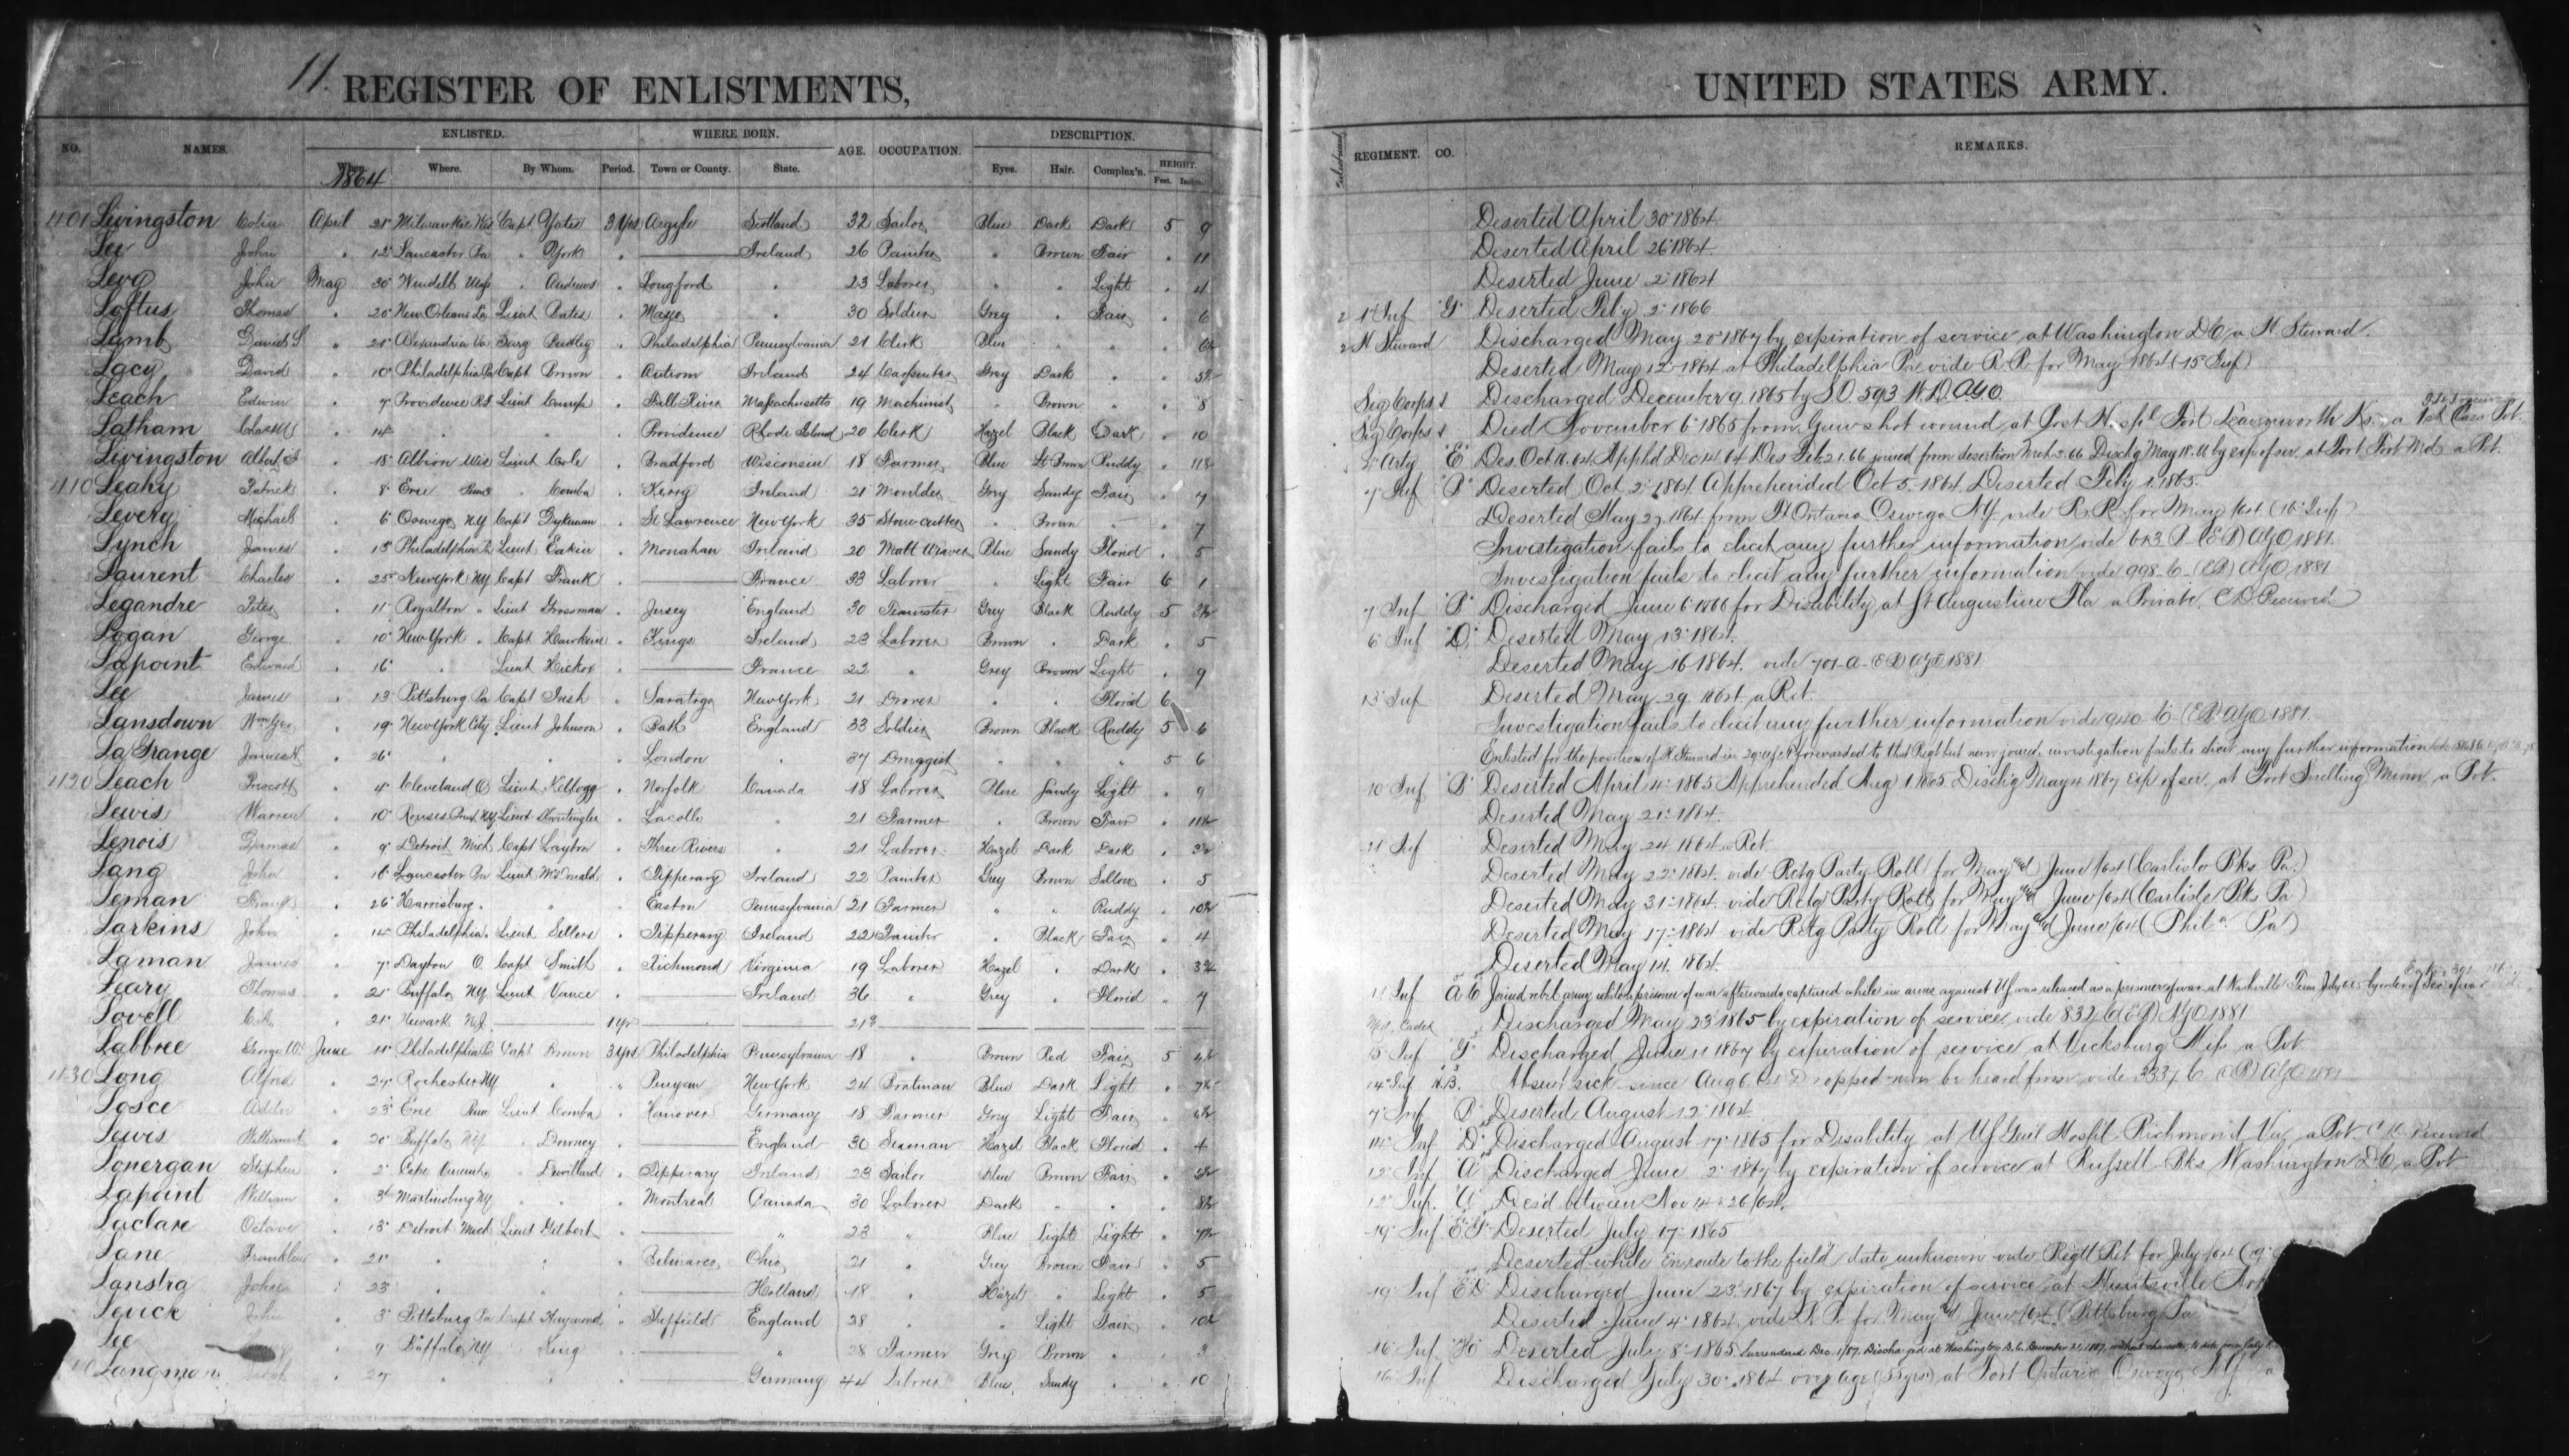 11.
REGISTER OF ENLISTMENTS,
UNITED STATES ARMY.
NO. NAMES. ENLISTED. WHERE BORN. AGE. OCCUPATION. DESCRIPTION.
When. Where. By Whom. Period. Town or County. State. Eyes. Hair. Complex'n. HEIGHT. Feet. Inches.
1864
REGIMENT. CO. REMARKS.
Livingston Colin April 21 Milwaukie Wis Capt Yates 3 Yrs Argyle Scotland 32 Sailor Blue Dark Dark 5 9 Deserted April 30 1864
Lee John " 12 Lancaster Pa " York " Ireland 26 Painter " Brown Fair " 11 Deserted April 26 1864
John May 30 Wendell " Andrews " Longford " 23 Laborer " " Light " Deserted June 2 1864
Loftus Thomas " 20 New Orleans La Lieut Bates " Mayo " 30 Soldier Grey " Fair " 6 1 Inf G Deserted Feby 2 1866
Lamb Daniel S " 21 Alexandria Va Surg " Philadelphia Pennsylvania 21 Clerk Blue " " " H Steward Discharged May 20 1867 by expiration of service at Washington D.C. a H. Steward.
Lacy David " 10 Philadelphia Pa Capt Brown " Antrim Ireland 24 Carpenter Grey Dark " " Deserted May 12 1864 at Philadelphia Pa vide R.R. for May 1864 (15 Inf)
Leach Edwin " 7 Providence R.I. Lieut " Fall River Massachusetts 19 Machinist " Brown " " 8 Sig Corps Discharged December 9 1865 by S.O. 593 W.D. AGO.
Latham " 14 " " " Providence Rhode Island 20 Clerk Hazel Black Dark " 10 Sig Corps Died November 6 1865 from Gunshot wound at Post Hospl Fort Leavenworth Ks. a 1st Class Pvt.
Livingston Albert " 18 Albion Wis Lieut Cole " Bradford Wisconsin 18 Farmer Blue Lt Brown Ruddy " Arty E
410 Leahy Patrick " 8 Erie Penna " Comba " Kerry Ireland 21 Moulder Grey Sandy Fair " 7 7 Inf B Deserted Oct 2 1864 Apprehended Oct 5. 1864. Deserted Feby 1. 1865.
Levery Michael " 6 Oswego N.Y. Capt Dykeman " St Lawrence New York 35 Stone cutter " Brown " 7 Deserted May 1864 from Ft Ontario Oswego N.Y. vide R.R. for May
Lynch James " 13 Philadelphia Pa Lieut Eakin " Monahan Ireland 20 Matt Weaver Blue Sandy Florid " 5 Investigation fails to elicit any further information vide AGO 1881
Laurent Charles " 25 New York N.Y. Capt Frank " France 33 Laborer " Light Fair 6 1 Investigation fails to elicit any further information vide AGO 1881
Legandre Peter " 11 Royalton " Lieut Grossman " Jersey England 30 Teamster Grey Black Ruddy 5 7 Inf B Discharged June 6 1866 for Disability at St Augustine Fla a Private. C.D. Received
Logan George " 10 New York " Capt Hawkins " Kings Ireland 23 Laborer Brown " Dark " 5 6 Inf D Deserted May 13 1864.
Lapoint Edward " 16 " Lieut " France 22 " Grey Brown Light " 9 Deserted May 16 1864. vide AGO 1881
Lee James " 13 Pittsburg Pa Capt Irish " Saratoga New York 21 Drover " " Florid 6 13 Inf Deserted May 29 1864 a Rct.
Lansdown Wm Geo " 19 New York City Lieut Johnson " Bath England 33 Soldier Brown Black Ruddy 5 6 Investigation fails to elicit any further information vide AGO 1881
La Grange James N. " 26 " " " London " 37 Druggist " " " 5 6 Enlisted for the position of H Steward in forwarded to that Regt but never joined, investigation fails to elicit any further information
1120 Leach Prescott " 4 Cleveland O Lieut Kellogg " Norfolk Canada 18 Laborer Blue Sandy Light " 9 10 Inf B Deserted April 4 1865 Apprehended Aug 1. 1865. Dischg May 4 1867 Exp of ser. at Fort Snelling Minn a Pvt.
Lewis Warren " 10 Rouses Point N.Y. Lieut " Lacolle " 21 Farmer " Brown Fair " Deserted May 21 1864.
Lenois " 9 Detroit Mich Capt Layton " Three Rivers " 21 Laborer Hazel Dark Dark " Inf Deserted May 24 1864 a Rct.
Lang John " 16 Lancaster Pa Lieut McDonald " Tipperary Ireland 22 Painter Grey Brown Sallow " 5 Deserted May 22 1864. vide Rctg Party Roll for May and June /64 (Carlisle Bks Pa.)
Leman Frank " 26 Harrisburg " " " Easton Pennsylvania 21 Farmer " " Ruddy " Deserted May 31 1864. vide Rctg Party Roll for May and June /64 (Carlisle Bks Pa)
Larkins John " 14 Philadelphia " Lieut Sellers " Tipperary Ireland 22 Painter " Black Fair " 4 Deserted May 17 1864 vide Rctg Party Roll for May and June /64 (Phila Pa)
Laman James " 7 Dayton O. Capt Smith " Richmond Virginia 19 Laborer Hazel " Dark " Deserted May 14. 1864.
Leary Thomas " 21 Buffalo N.Y. Lieut Vance " Ireland 36 " Grey " Florid " 7 Inf Joined rebel army while a prisoner of war afterwards captured while in arms against U.S. was released as a prisoner of war at Nashville Tenn
Lovell " 21 Newark N.J. 1 yr 21 Discharged May 23 1865 by expiration of service, vide AGO 1881
Labbree George W. June 11 Philadelphia Pa Capt Brown 3 Yrs Philadelphia Pennsylvania 18 " Brown Red Fair 5 15 Inf G Discharged June 11 1867 by expiration of service at Vicksburg Miss a Pvt
1130 Long Alfred " 27 Rochester N.Y. " " Penyan New York 24 Boatman Blue Dark Light " 14 Inf Absent sick since Aug 6 Dropped never be heard from vide AGO
Losce " 23 Erie Penn Lieut Comba " Hanover Germany 18 Farmer Grey Light Fair " 7 Inf B Deserted August 12 1864
Lewis William " 20 Buffalo N.Y. " Downey " England 30 Seaman Hazel Black Florid " 4 14 Inf D Discharged August 17 1865 for Disability at U.S. Genl Hospl Richmond Va a Pvt. C.D. Received
Lonergan Stephen " 2 Cape Vincent " " Dewillard " Tipperary Ireland 23 Sailor Blue Brown Fair " 12 Inf A Discharged June 2 1867 by expiration of service at Russell Bks Washington D.C. a Pvt
Lapoint William " 3 Martinsburg N.Y. " " " Montreal Canada 30 Laborer Dark " " " 12 Inf. Des'd between Nov 14 & 26 /64.
Laclare Octave " 13 Detroit Mich Lieut Gilbert " " 23 " Blue Light Light " 19 Inf Deserted July 17 1865
Lane Franklin " 21 " " " Ohio 21 " Grey Brown Fair " 5 Deserted while Enroute to the field date unknown vide Regtl Ret for July /64
Lanstra John " 23 " " " Holland 18 " Hazel " Light " 5 19 Inf Discharged June 23 1867 by expiration of service at Huntsville
Leuck John " 3 Pittsburg Pa Capt Heywood " Sheffield England 28 " " Light Fair " Deserted June 4 1864, vide R.R. for May and June /64 (Pittsburg Pa
Lee " 9 Buffalo N.Y. King " " 28 Farmer Grey Brown " " 3 16 Inf H Deserted July 8 1865. Surrendered Dec. Discharged at Washington D.C. December
" 27 " " Germany 44 Laborer Blue Sandy " " 10 16 Inf Discharged July 30 1864 over age (55 yrs) at Fort Ontario Oswego N.Y. a